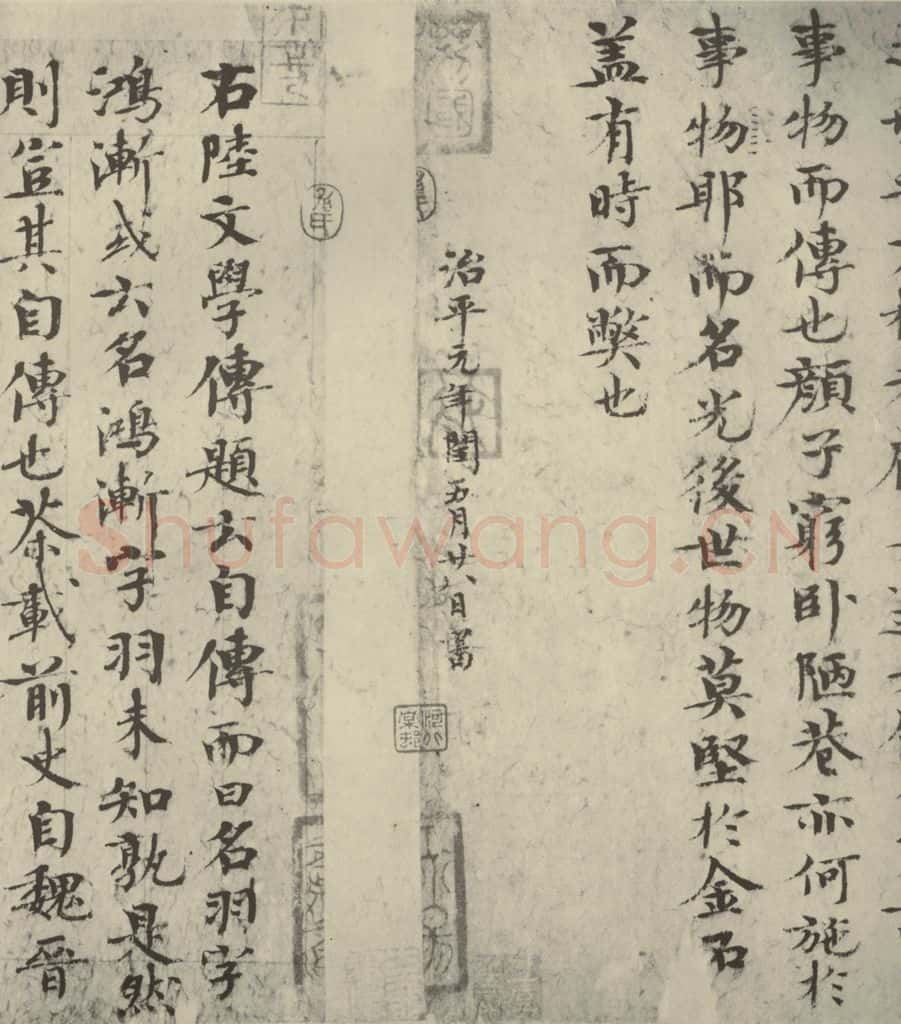 事物而傳也顏子窮卧陋巷亦何施於
事物耶而名光後世物莫堅於金石
盖有時而弊也
治平元年閏五月廿八日書
右陸文學傳題云自傳而曰名羽字
鴻漸或云名鴻漸字羽未知孰是然
則豈其自傳也茶載前史自魏晉
Shufawang.CN